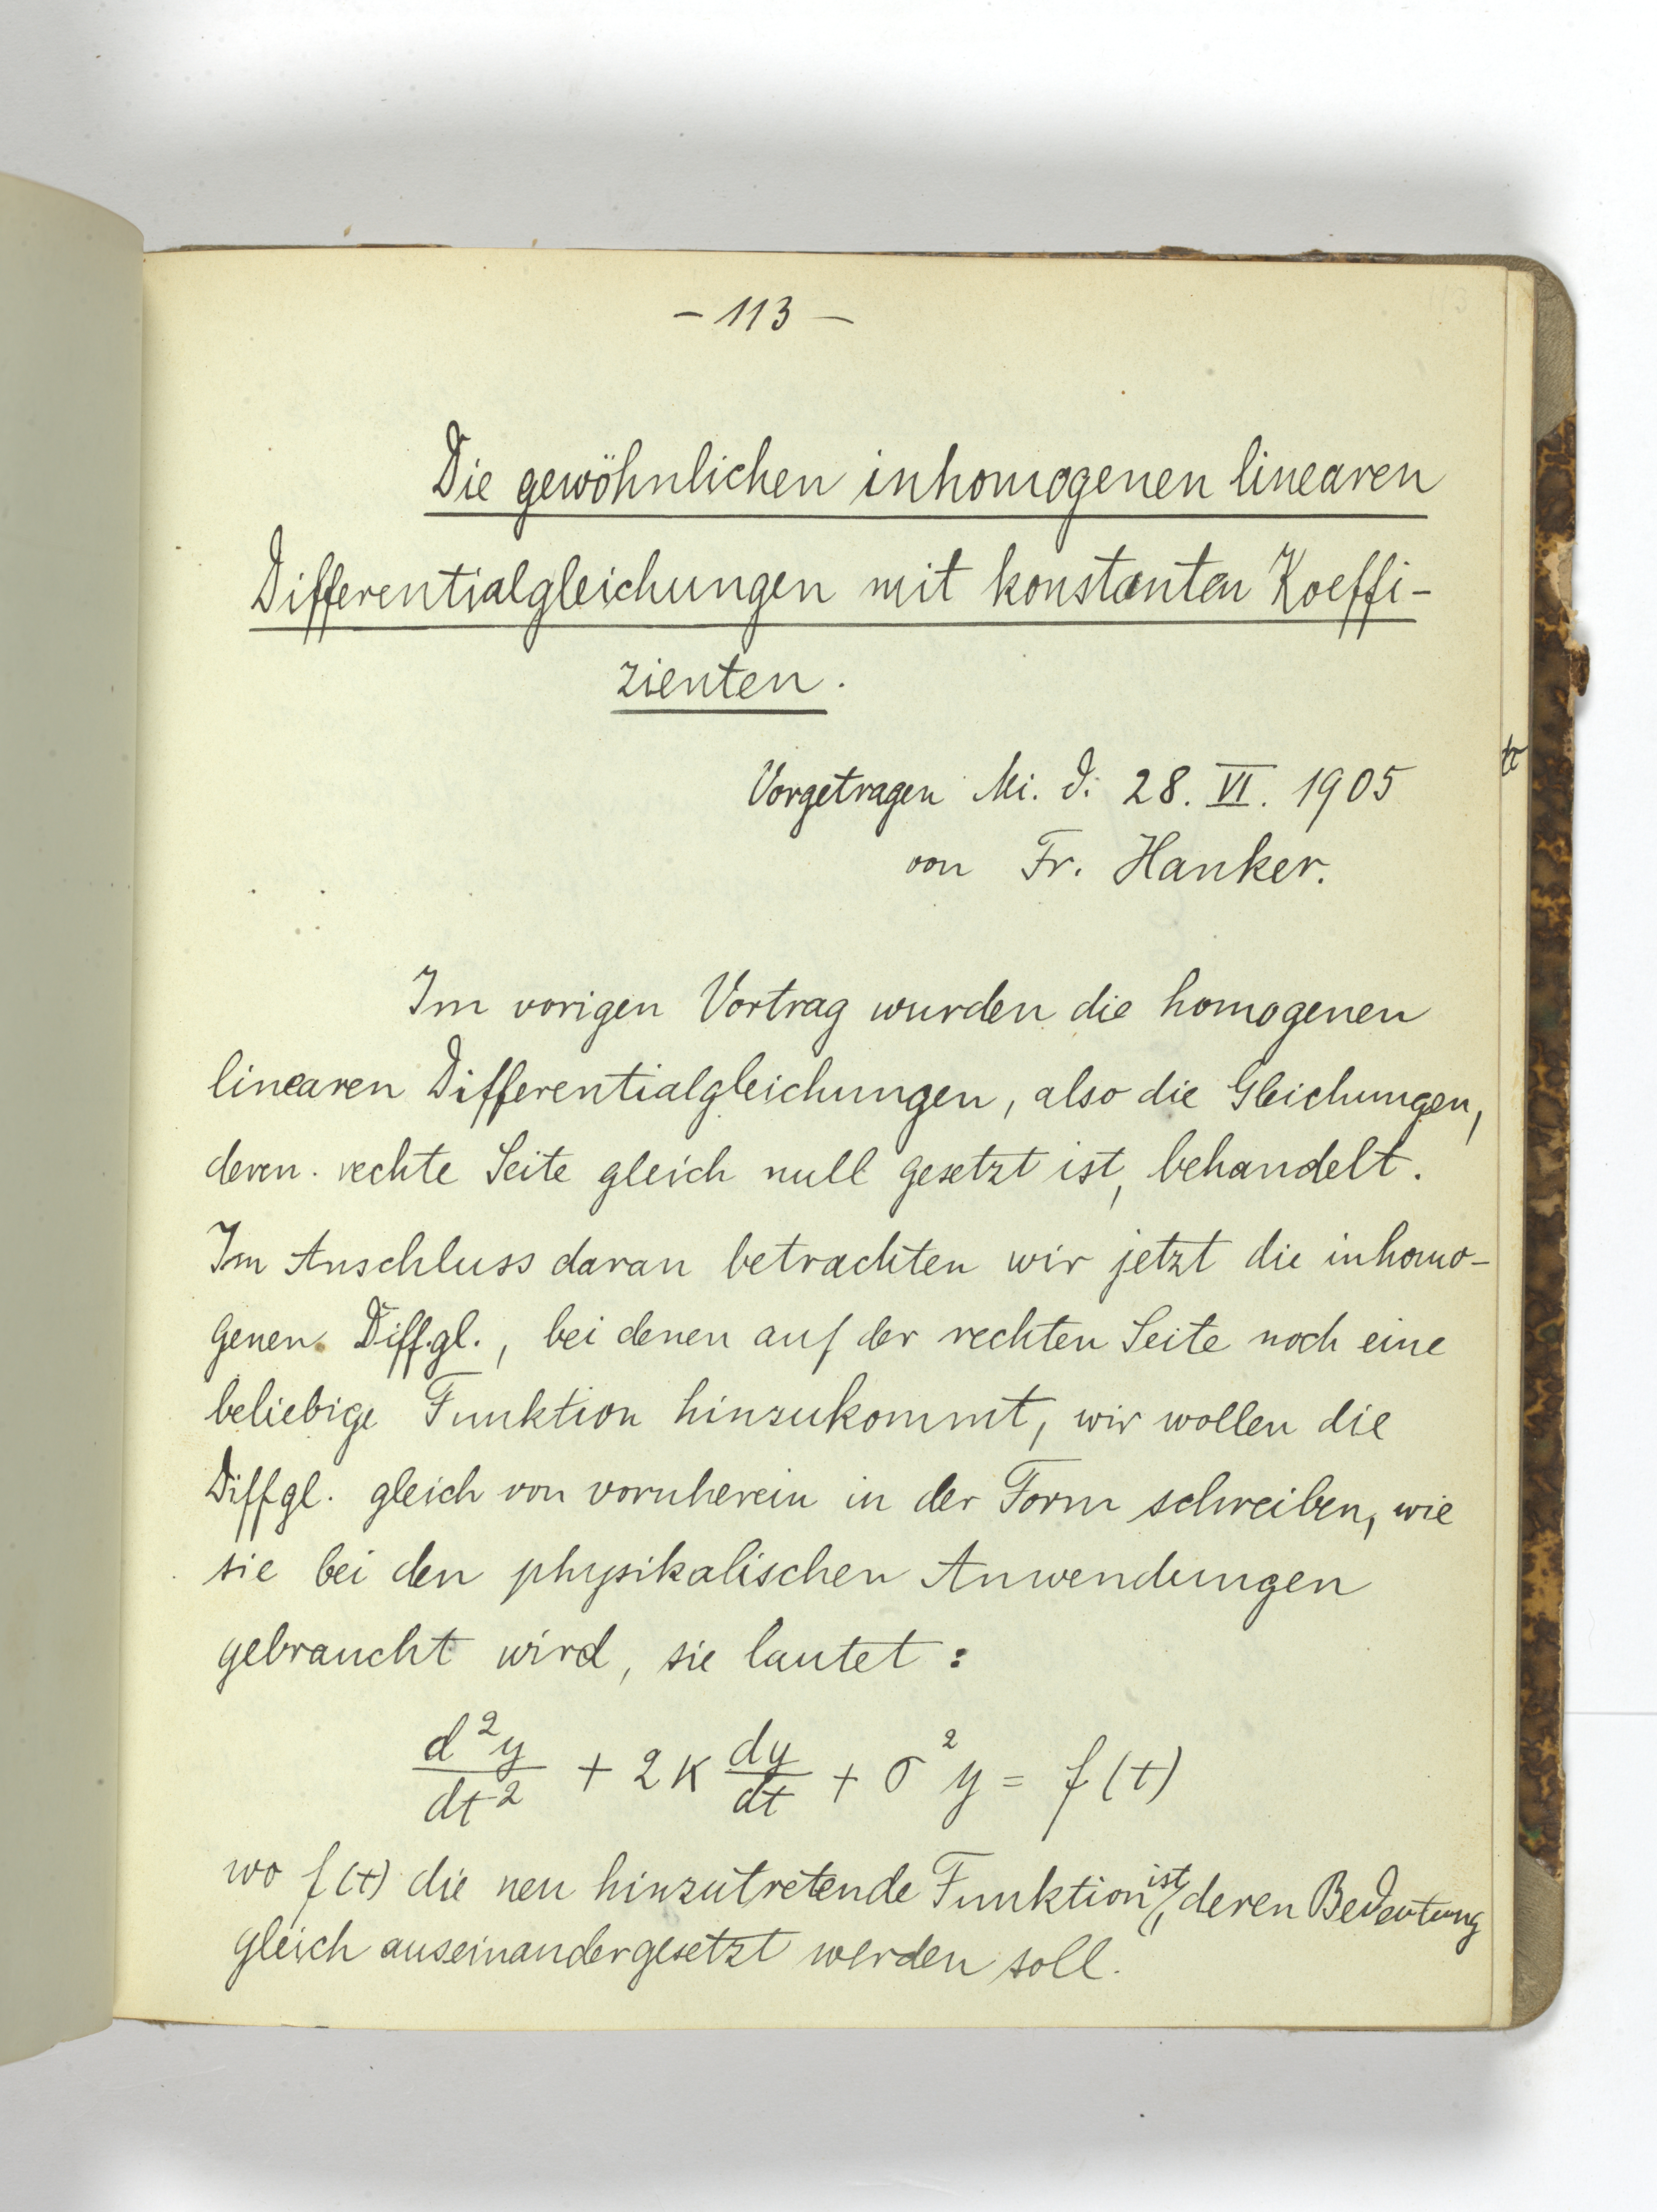 – 113 –
Die gewöhnlichen inhomogenen linearen
Differentialgleichungen mit konstanten Koeffi-
zienten.
Vorgetragen Mi. d. 28. VI. 1905
von Fr. Hanker.
Im vorigen Vortrag wurden die homogenen
linearen Differentialgleichungen, also die Gleichungen,
deren rechte Seite gleich null gesetzt ist, behandelt.
Im Anschluss daran betrachten wir jetzt die inhomo-
genen Diffgl., bei denen auf der rechten Seite noch eine
beliebige Funktion hinzukommt, wir wollen die
Diffgl. gleich von vornherein in der Form schreiben, wie
sie bei den physikalischen Anwendungen
gebraucht wird, sie lautet:
d²y/dt² + 2κ dy/dt + σ²y = f(t)
wo f(t) die neu hinzutretende Funktion ist, deren Bedeutung
gleich auseinandergesetzt werden soll.